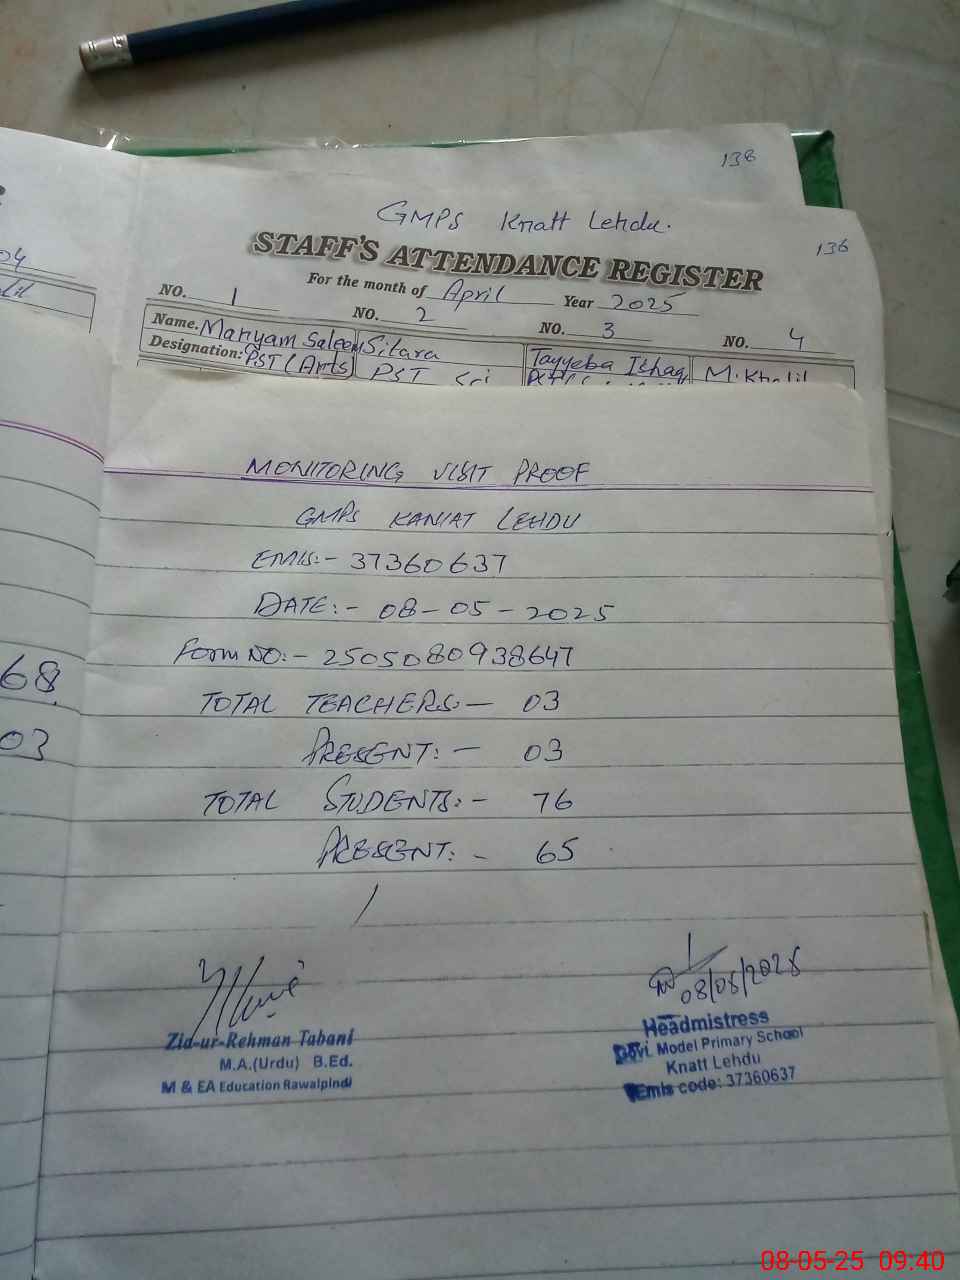 138
GMPS Knatt Lehdu.
136
STAFF'S ATTENDANCE REGISTER
For the month of April Year 2025
NO. 1 NO. 2 NO. 3 NO. 4
Name. Mariyam Saleem Sitara Tayyeba Ishaq M. Khalil
Designation: PST (Arts) PST Sci
04
lil
68
03
MONITORING VISIT PROOF
GMPS KANIAT LEHDU
EMIS:- 37360637
DATE:- 08-05-2025
Form NO:- 2505080938647
TOTAL TEACHERS:- 03
PRESENT:- 03
TOTAL STUDENTS:- 76
PRESENT:- 65
08/05/2025
Zia-ur-Rehman Tabani
M.A.(Urdu) B.Ed.
M & EA Education Rawalpindi
Headmistress
Govt. Model Primary School
Knatt Lehdu
Emis code: 37360637
08-05-25 09:40